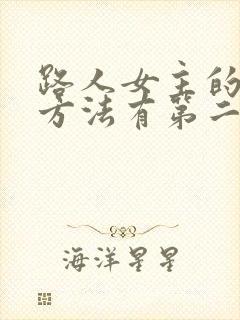 路人女主的
方法有第二
海洋星星